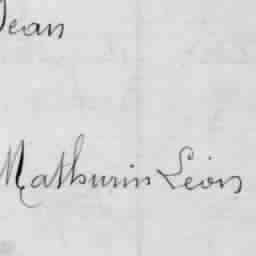 Jean
Mathurin Léon